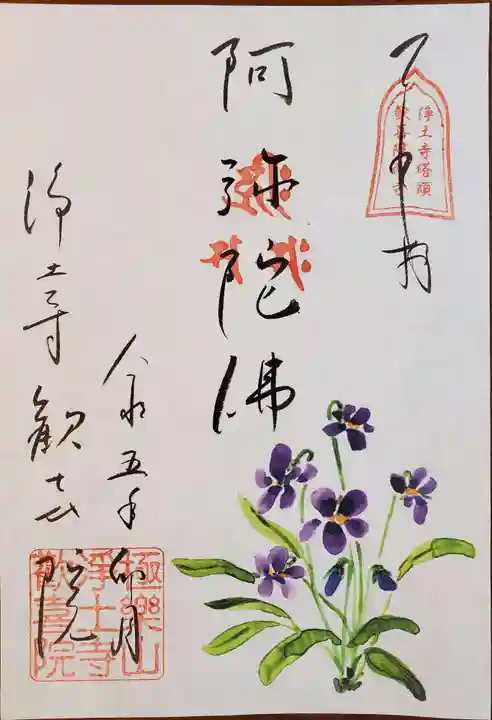 奉拝
浄土寺塔頭
歓喜院
阿弥陀佛
令和五年 卯月
浄土寺 観喜院
極樂山
浄土寺
歓喜院